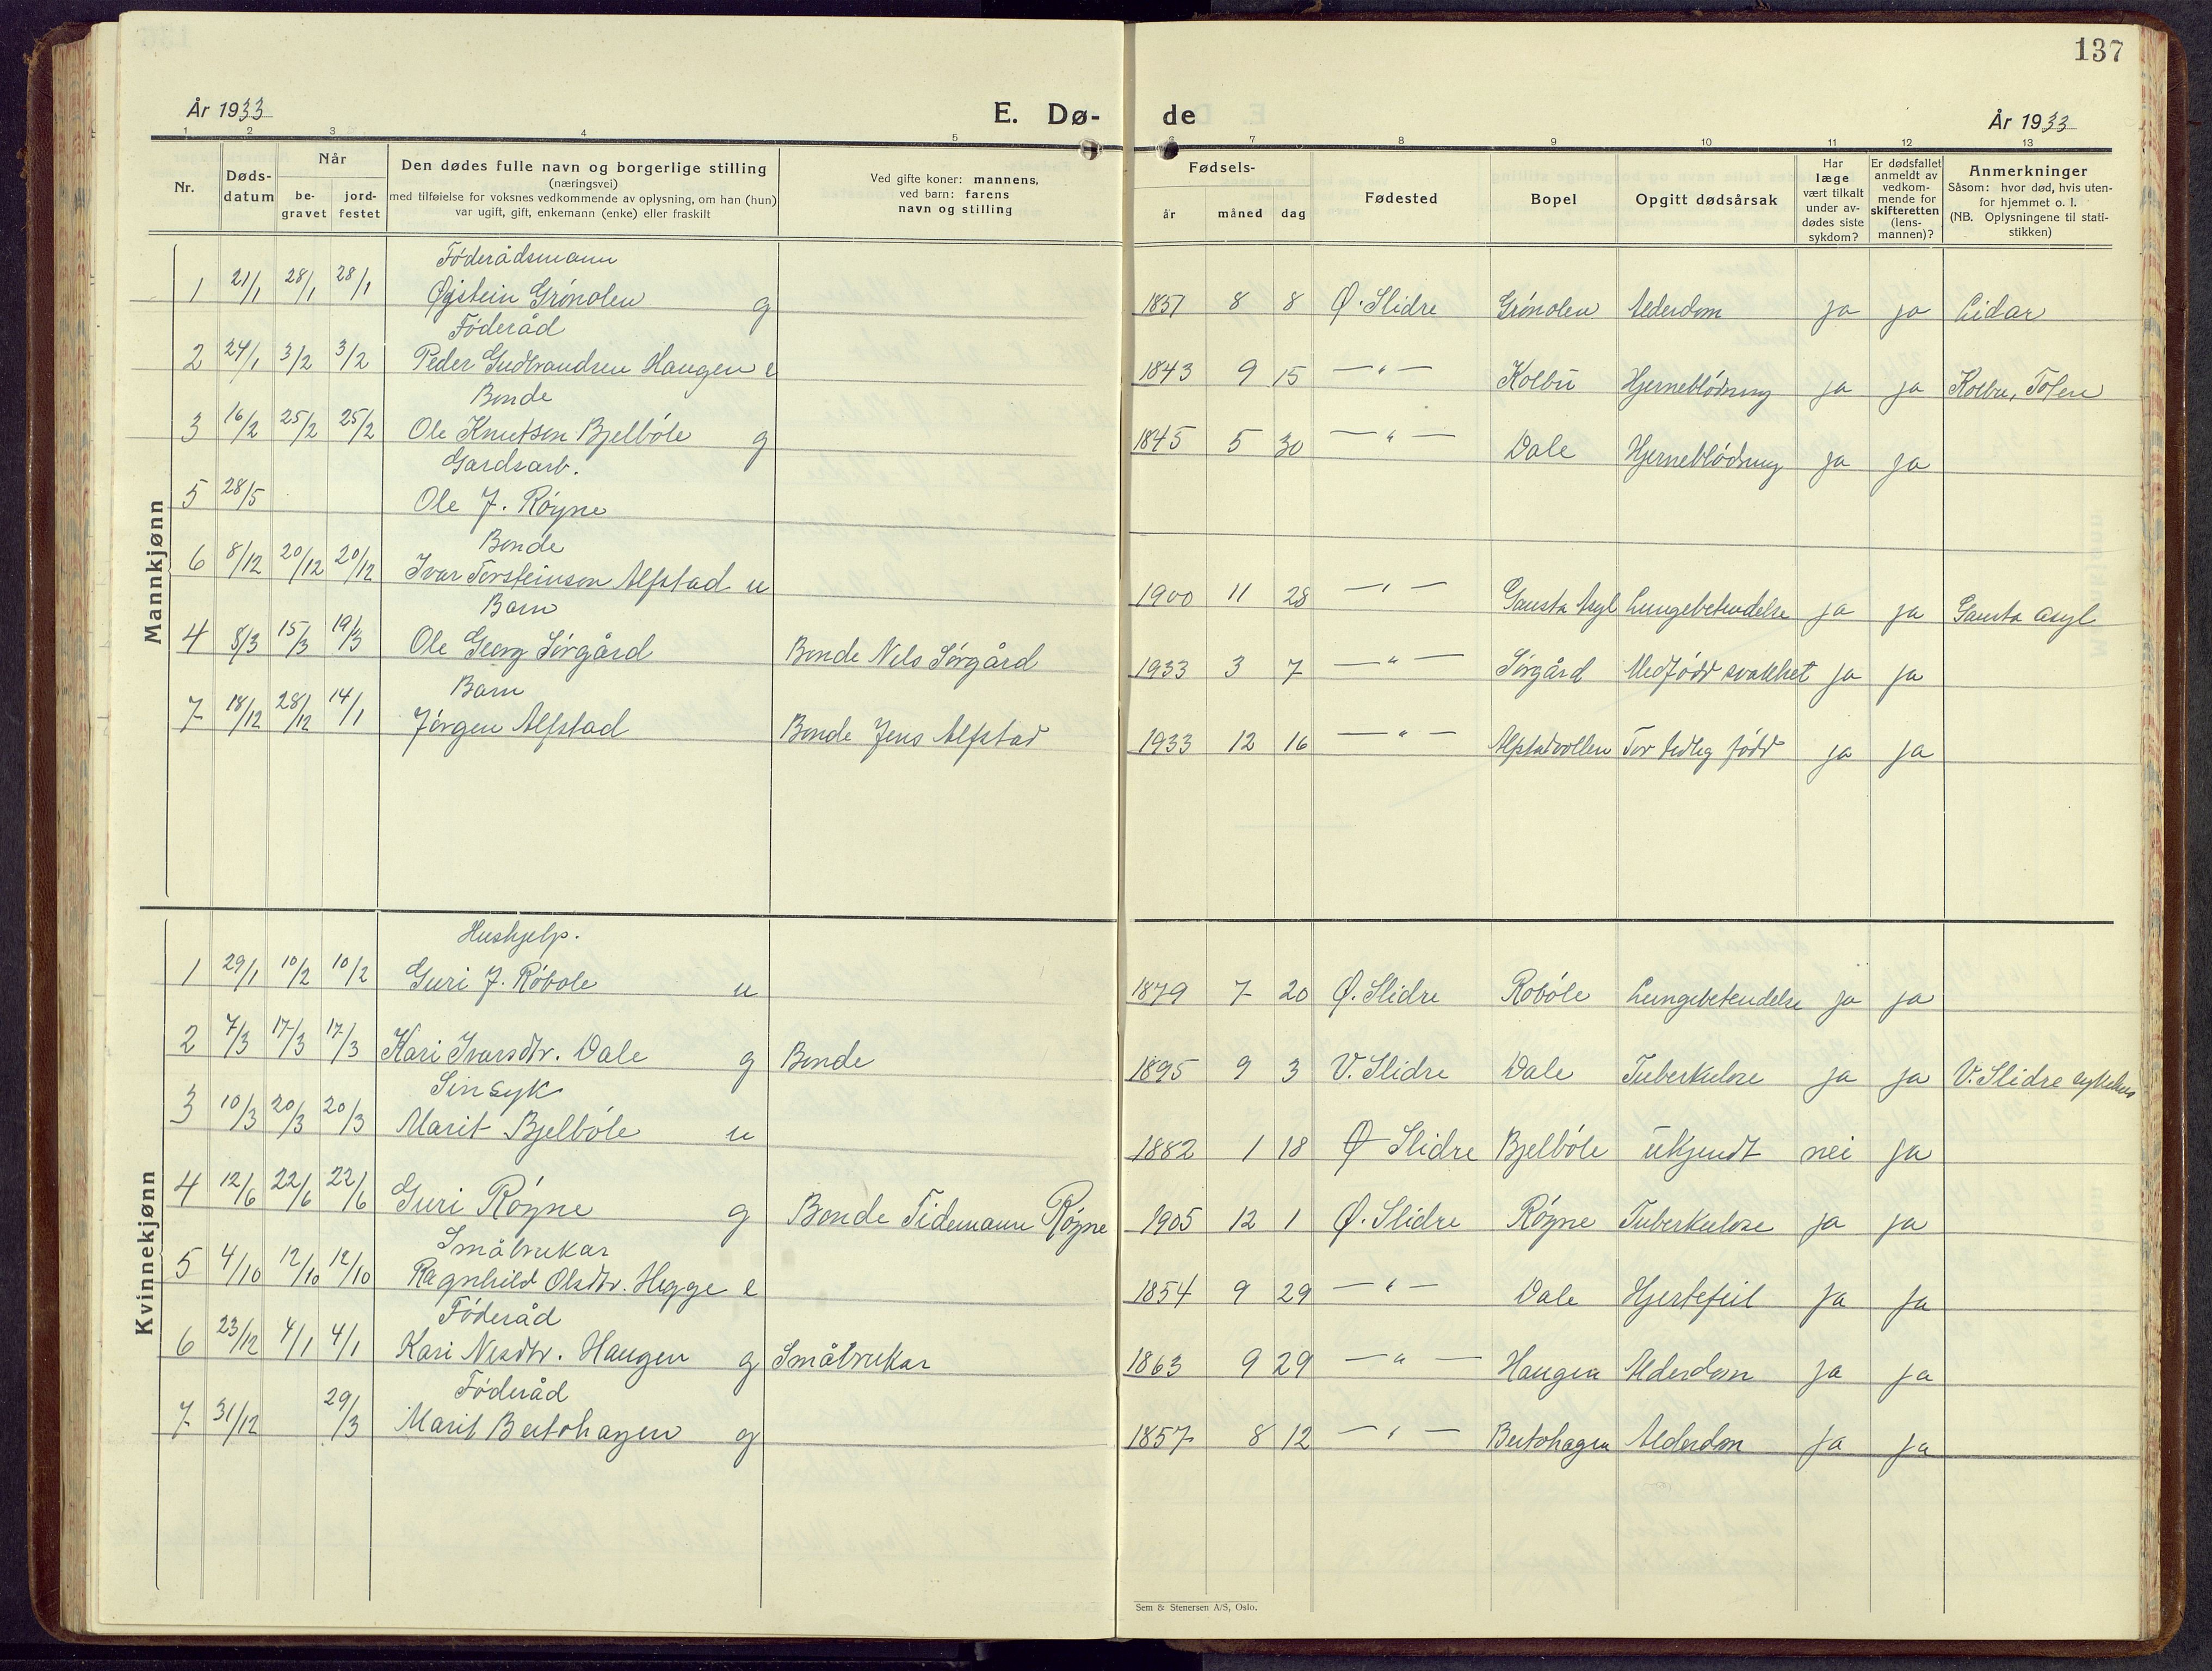 137
År 1933
E. Dø-
de
År 1933
1 2 3 4 5
6 7 8 9 10 11 12 13
Nr.
Døds-
datum
Når
be-
gravet
jord-
festet
Den dødes fulle navn og borgerlige stilling
(næringsvei)
med tilføielse for voksnes vedkommende av oplysning, om han (hun)
var ugift, gift, enkemann (enke) eller fraskilt
Ved gifte koner: mannens,
ved barn: farens
navn og stilling
Fødsels-
år måned dag
Fødested
Bopel
Opgitt dødsårsak
Har
læge
vært tilkalt
under av-
dødes siste
sykdom?
Er dødsfallet
anmeldt av
vedkom-
mende for
skifteretten
(lens-
mannen)?
Anmerkninger
Såsom: hvor død, hvis uten-
for hjemmet o. l.
(NB. Oplysningene til stati-
stikken)
Mannkjønn
Føderådsmann
1 21/1 28/1 28/1 Øystein Grønolen g 1857 8 8 Ø. Slidre Grønolen Alderdom ja ja Lidar
Føderåd
2 24/1 3/2 3/2 Peder Gudbrandsen Haugen e 1843 9 15 — " — Kolbu Hjerneblødning ja ja Kolbu, Toten
Bonde
3 16/2 25/2 25/2 Ole Knutson Bjelbøle g 1845 5 30 — " — Dale Hjerneblødning ja ja
Gardsarb.
5 28/5 Ole J. Røyne
Bonde
6 8/12 20/12 20/12 Ivar Torsteinson Alfstad u 1900 11 28 — " — Gausta Asyl Lungebetendelse ja ja Gausta asyl
Barn
4 8/3 15/3 19/3 Ole Georg Sørgård Bonde Nels Sørgård 1933 3 7 — " — Sørgård Medfødd svakhet ja ja
Barn
7 18/12 28/12 14/1 Jørgen Alfstad Bonde Jens Alfstad 1933 12 16 — " — Alfstadvollen For tidlig født ja ja
Kvinnekjønn
Hushjelp.
1 29/1 10/2 10/2 Guri J. Røbole u 1879 7 20 Ø. Slidre Robøle Lungebetendelse ja ja
2 7/3 17/3 17/3 Kari Ivarsdtr. Dale g Bonde 1895 9 3 V. Slidre Dale Tuberkulose ja ja V. Slidre sykehus
Sinsyk
3 10/3 20/3 20/3 Marit Bjelbøle u 1882 1 18 Ø Slidre Bjelbøle ukjendt nei ja
4 12/6 22/6 22/6 Guri Røyne g Bonde Tidemann Røyne 1905 12 1 Ø. Slidre Røyne Tuberkulose ja ja
Småbrukar
5 4/10 12/10 12/10 Ragnhild Olsdtr. Hegge e 1854 9 29 — " — Dale Hjertefeil ja ja
Føderåd
6 23/12 4/1 4/1 Kari Nesdtr. Haugen g Småbrukar 1863 9 29 — " — Haugen Alderdom ja ja
Føderåd
7 31/12 29/3 Marit Beitohagen g 1857 8 12 — " — Beitohagen Alderdom ja ja
Sem & Stenersen A/S, Oslo.